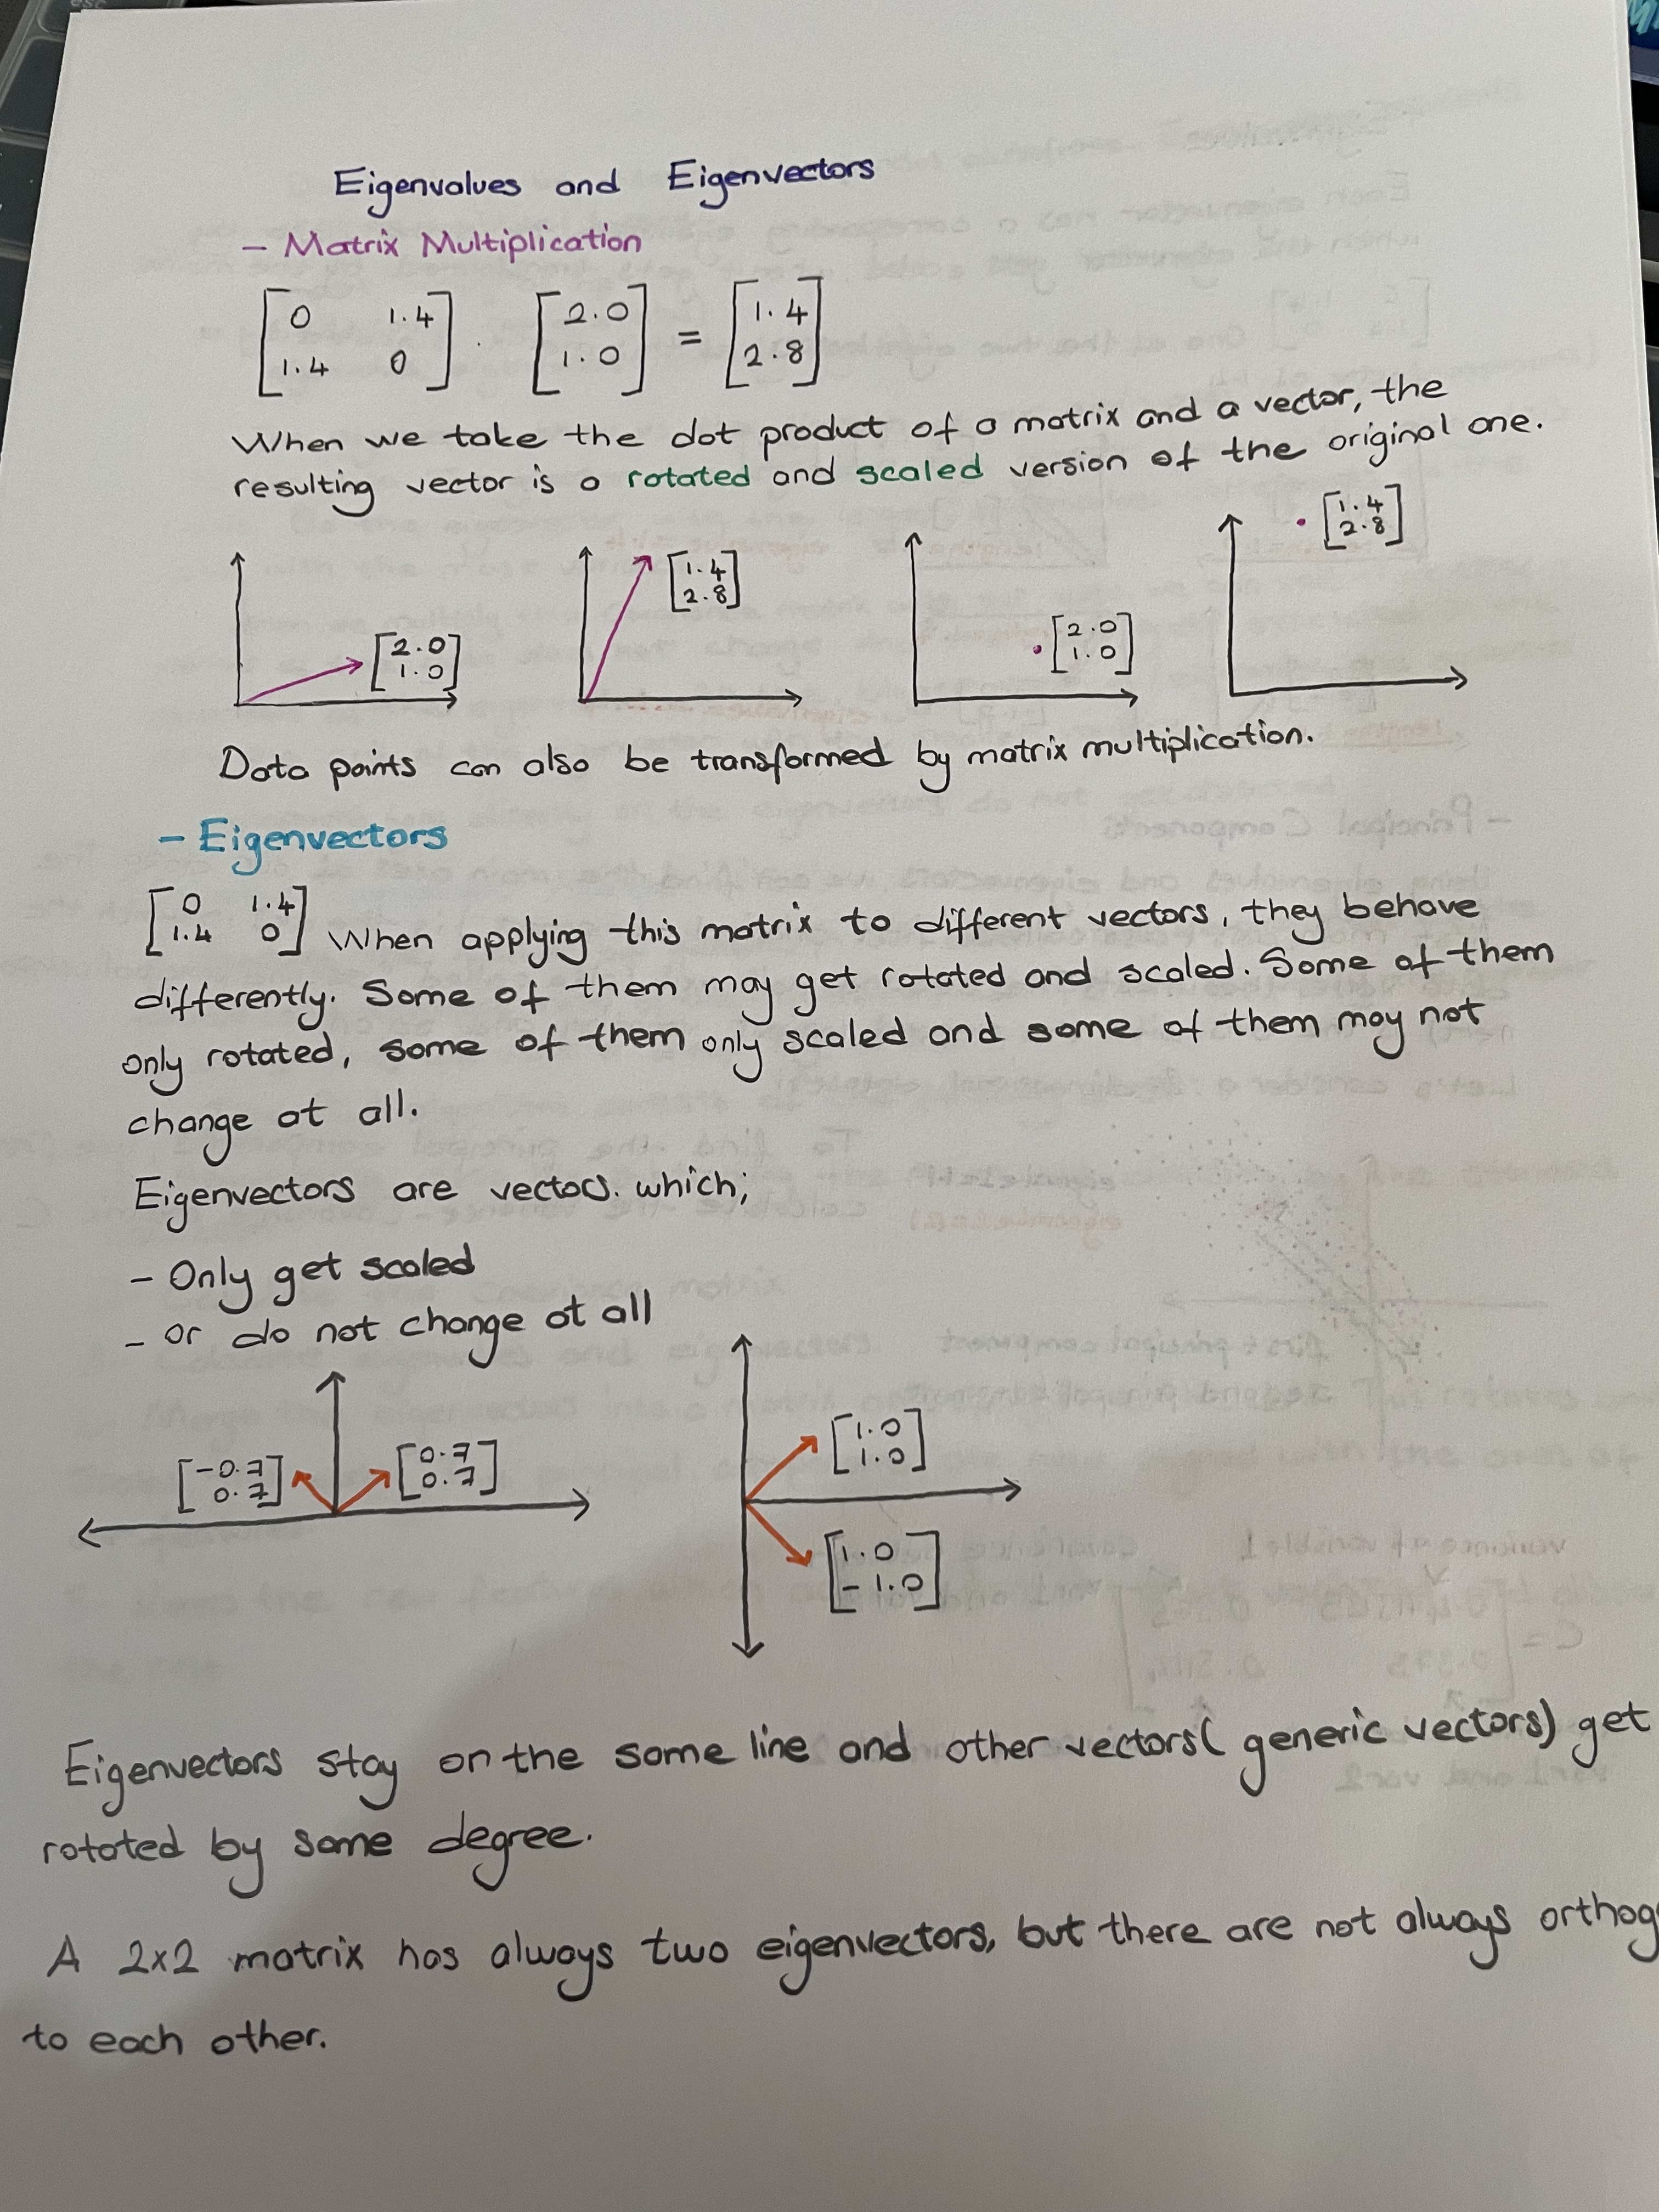 Eigenvalues and Eigenvectors
- Matrix Multiplication
[0 1.4
1.4 0] . [2.0
1.0] = [1.4
2.8]
When we take the dot product of a matrix and a vector, the
resulting vector is a rotated and scaled version of the original one.
[2.0
1.0]
[1.4
2.8]
[2.0
1.0]
[1.4
2.8]
Data points can also be transformed by matrix multiplication.
- Eigenvectors
[0 1.4
1.4 0] When applying this matrix to different vectors, they behave
differently. Some of them may get rotated and scaled. Some of them
only rotated, some of them only scaled and some of them may not
change at all.
Eigenvectors are vectors. which;
- Only get scaled
- or do not change at all
[-0.7
0.7]
[0.7
0.7]
[1.0
1.0]
[1.0
-1.0]
Eigenvectors stay on the same line and other vectors( generic vectors) get
rotated by some degree.
A 2x2 matrix has always two eigenvectors, but there are not always orthog
to each other.